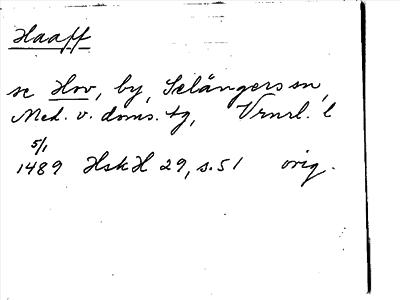 Haaff
se Hov, by, Selångers sn,
Med. v. doms. tg, Vrnrl. l
5/1
1489 HskH 29, s. 51 orig.